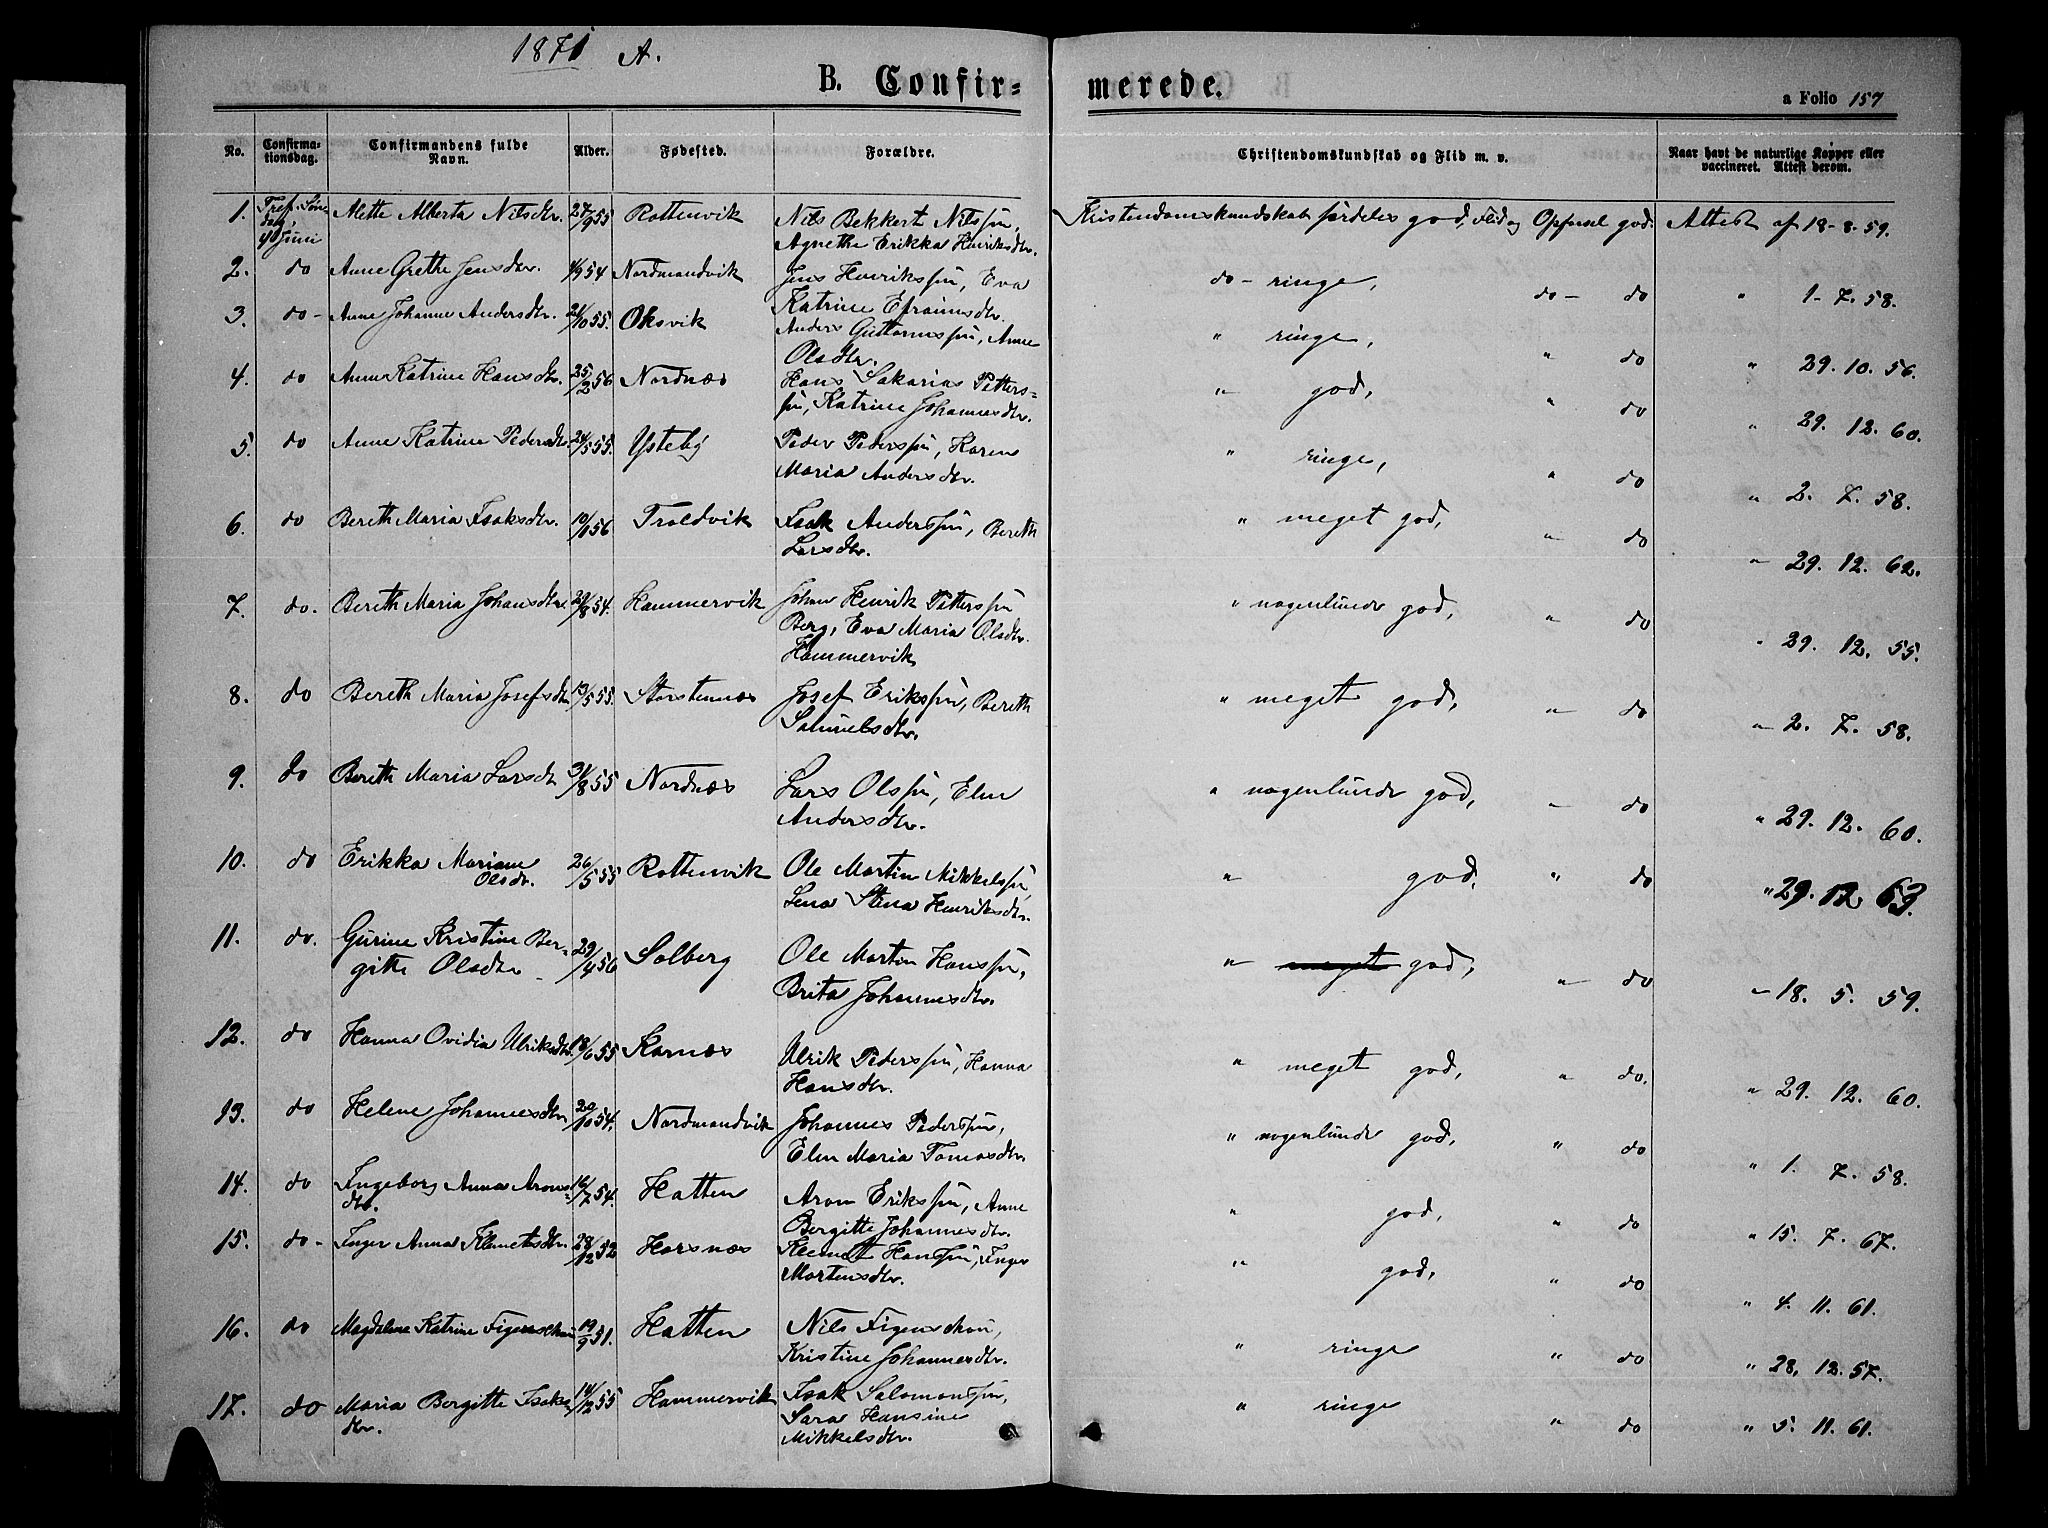 1871 A.
B. Confir=
merede.
a Folio 157
No.
Confirma-
tionsdag.
Confirmandens fulde
Navn.
Alder.
Fødested.
Forældre.
Christendomskundskab og Flid m. v.
Naar havt de naturlige Kopper eller
vaccineret. Attest derom.
1. Tref. Søn- Mette Alberta Nilsdtr. 27/9 55 Rottenvik Nils Bekkert Nilssøn, Kristendomskundskab særdeles god, Flid og Opførsel god. Attest af 18-8.59.
dag,
Juni Agnethe Erikka Henriksdtr.
2. do Anne Grethe Jensdtr. 1/9 54 Nordmandvik Jens Henrikssøn, Eva do - ringe, do - do " 1-7.58.
Katrine Efraimsdtr.
3. do - Anne Johanne Andersdtr. 21/10 55. Oksvik Anders Guttormssøn, Anne " ringe, " do " 29.10.56.
Olsdtr.
4. do Anne Katrine Hansdtr. 25/2 56 Nordnæs Hans Sakarias Petters- " god, " do " 29.12.60.
søn, Katrine Johannesdtr.
5. do Anne Katrine Pedersdtr. 24/5 55. Ysteby Peder Pederssøn, Karen " ringe, " do " 2. 7. 58.
Maria Andersdtr.
6. do Bereth Maria Isaksdtr. 10/1 56 Troldvik Isak Anderssøn, Bereth " meget god, " do " 29.12.62.
Larsdtr.
7. do. Bereth Maria Johansdtr. 29/8 54. Hammervik Johan Henrik Petterssøn " nogenlunde god, " do " 29.12.55.
Berg, Eva Maria Olsdtr.
Hammervik
8. do Bereth Maria Josefsdtr 13/5 55. Storstennæs Josef Erikssøn, Bereth " meget god, " do " 2. 7. 58.
Samuelsdtr.
9. do Bereth Maria Larsdtr 31/8 55 Nordnæs Lars Olssøn, Elen " nogenlunde god, " do " 29.12.60.
Andersdtr.
10. do Erikka Mariane 26/5 55 Rottenvik Ole Martin Mikkelssøn, " god, " do " 29.12 63.
Olsdtr. Lena Stina Henriksdtr.
11. do. Gurine Kristine Ber- 29/4 56 Solberg Ole Martin Hanssøn, " meget god, " do " 18. 5. 59.
gitte Olsdtr Brita Johannesdtr.
12. do Hanna Ovidia Ulriksdtr. 18/6 55 Karnæs Ulrik Pederssøn, Hanna " meget god, " do. " 29.12.60.
Hansdtr.
13. do Helene Johannesdtr. 20/10 54. Nordmandvik Johannes Pederssøn, " nogenlunde god, " do " 1. 7. 58.
Elen Maria Tomasdtr.
14. do Ingeborg Anna Arons- 16/7 54. Hatten Aron Erikssøn, Anne " god, " do " 15. 7. 67.
dtr. Bergitte Johannesdtr.
15. do - Inger Anna Klemetsdtr. 28/12 52 Horsnæs Klemet Hanssøn, Inger " god, " do " 4. 11. 61.
Mortensdtr.
16. do Magdelene Katrine Figenschau 19/9 51. Hatten Nils Figenschau, " ringe " do " 28.12.57.
Kristine Johannesdtr.
17. do Maria Bergitte Isaks- 14/12 55 Hammervik Isak Salomonssøn, " ringe " do " 5. 11. 61.
dtr. Sara Hansine
Mikkelsdtr.